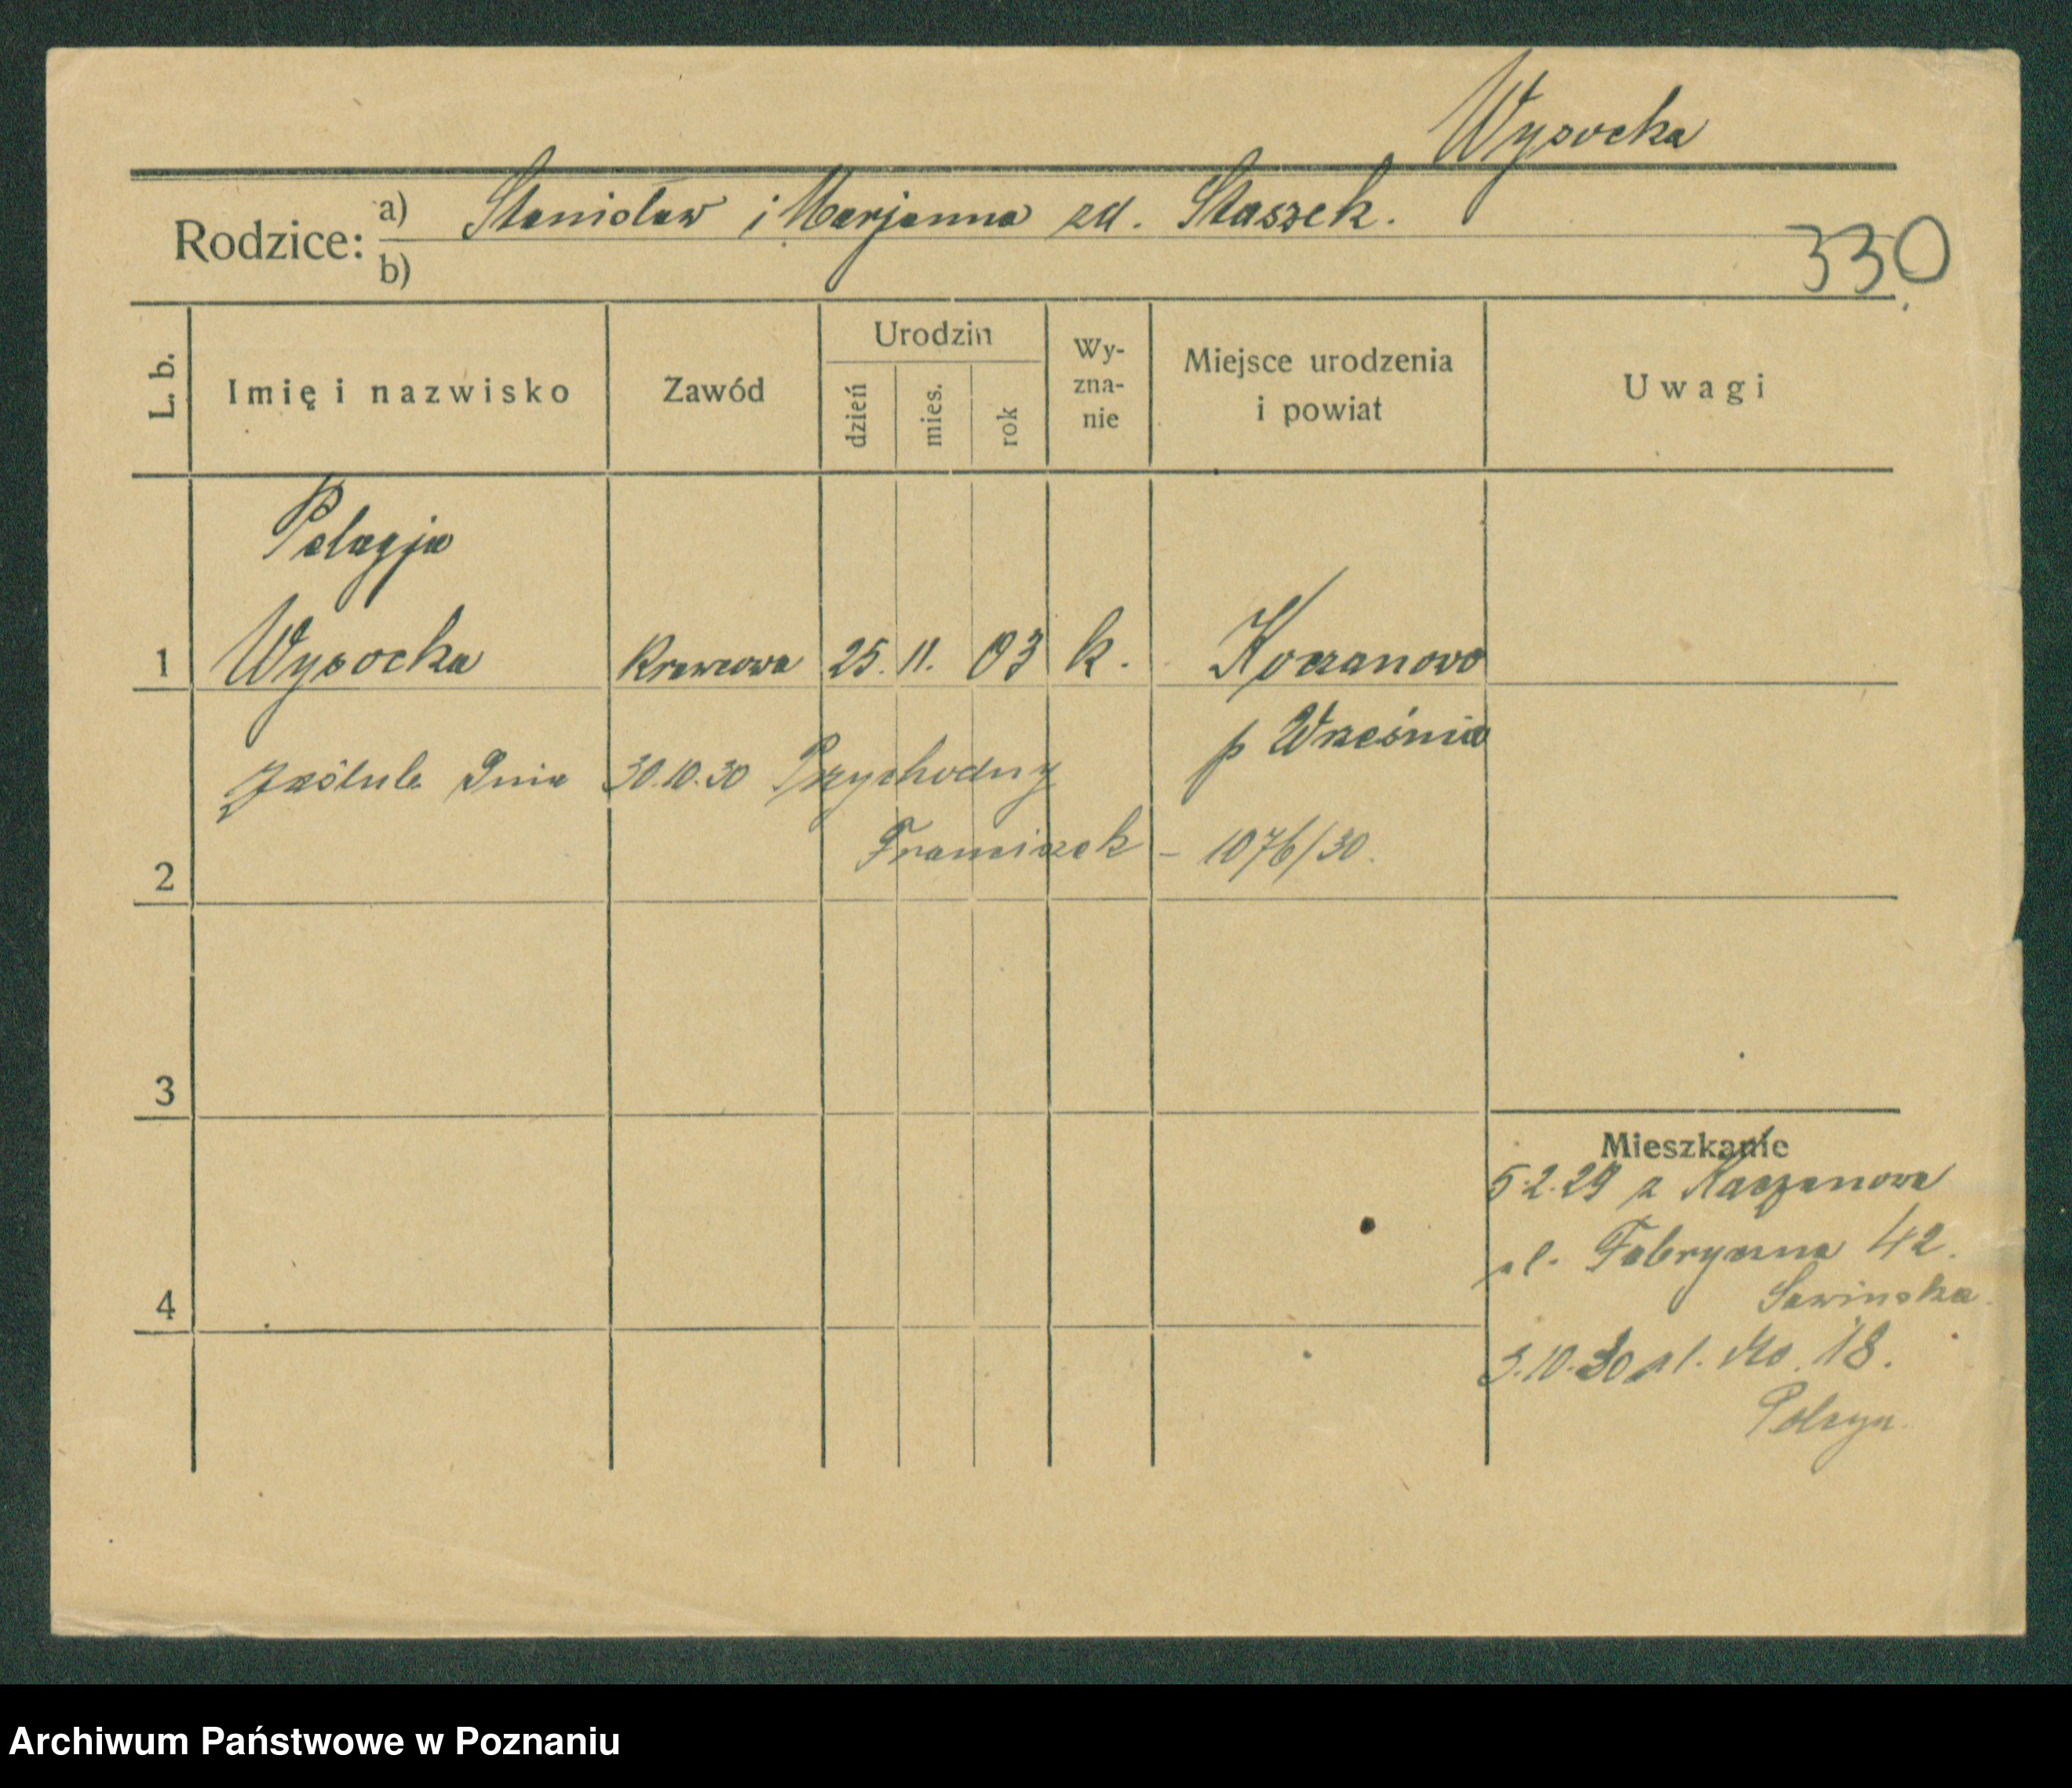 Wysocka
Rodzice: a) Stanisław i Marjanna zd. Staszek.
b)
330
L. b. Imię i nazwisko Zawód Urodzin dzień mies. rok Wy-zna-nie Miejsce urodzenia i powiat Uwagi
Pelagja
1 Wysocka Krawcowa 25. 11. 03 k. Kaczanowo
p Września
zaślub. Dnia 30.10.30 Przychodny
Franciszek - 1076/30.
2
3
Mieszkanie
5.2.29 z Kaczanowa
ul. Fabryczna 42.
4
3.10.30 ul. 18.
Archiwum Państwowe w Poznaniu